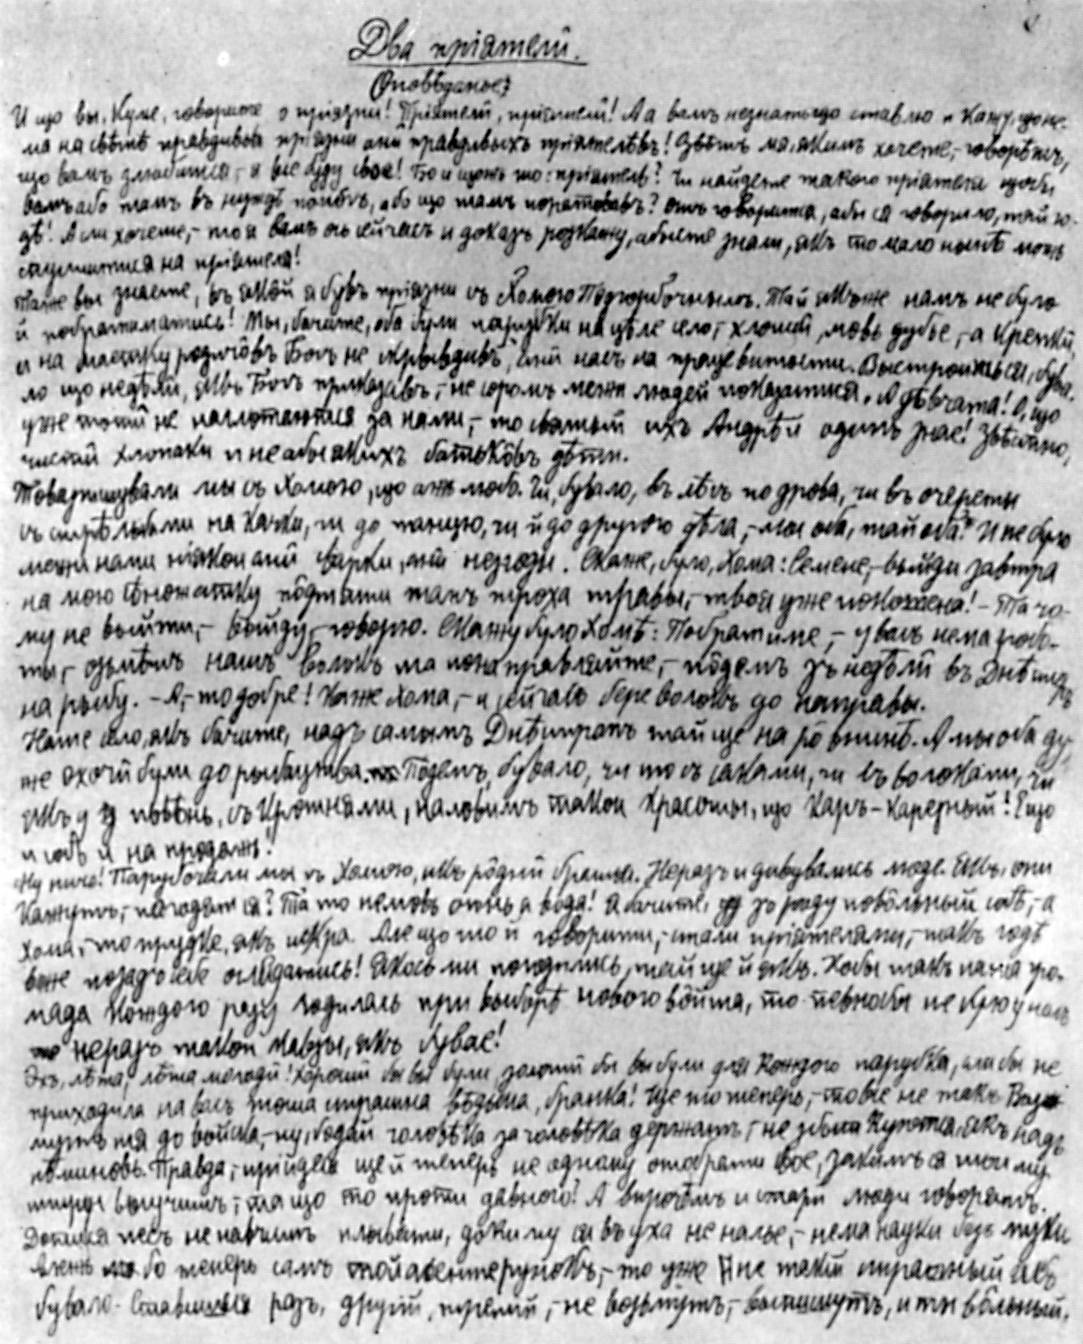 Два пріятелѣ.
(Оповѣданье)
И що вы, Куме, говорите о пріязни! Пріятелѣ, пріятелѣ! А я вамъ незнать що ставлю и кажу, що не-
ма на свѣтѣ правдивои пріязни ани правдивыхъ пріятелѣвъ! Звѣть мя, якимъ хочете, - говорѣть,
що вамъ злюбится, - я все буду свое! Бо и щожъ то: пріятель? Чи найдете такого пріятеля щобы
вамъ або тамъ въ нуждѣ помôгъ, або що тамъ поратовавъ? отъ говорится, абы ся говорило, тай го-
дѣ! А сли хочете, - то я вамъ ось сейчасъ и доказъ розкажу, абысте знали, якъ то мало нынѣ можь
спуститися на пріятеля!
Таже вы знаете, въ якôй я бувъ пріязни съ Хомою Подгорбочнымъ. Тай якъже намъ не було
й побратимались! Мы, бачите, оба були парубки на цѣле село, - хлопцѣ, мовь дубье, - а крепкй,
и на маєтку родичôвъ Богъ не скривдивъ, анй насъ на працевитости. Выстроишься, бува-
ло що недѣли, якъ Богъ приказавъ, - не соромъ межи людей показатися. А дѣвчата! О, що
уже тотй не наглотаются за нами, - то святый ихъ Андрѣй одинъ знае! Звѣстно,
чистй хлопаки и не абы якихъ батькôвъ дѣти.
Товаришували мы съ Хомою, що ажь любо. Чи, бувало, въ лѣсъ по дрова, чи въ очереты
съ стрѣльбами на качки, чи до танцю, чи й до другого дѣла, - мы оба, тай оба! И не було
межи нами нiякои анй сварки, анй незгоды. Скаже, було, Хома: Семене, - выйди завтра
на мою сѣножатку пôдтяти тамъ троха травы, - твоя уже покошена! - Та чо-
му не выйти, - выйду, - говорю. Скажу було Хомѣ: Побратиме, - у васъ нема робо-
ты, - озьмѣть нашъ волокъ та понаправляйте, - пôдемъ въ недѣлй въ Днѣстръ
на рыбу. - А, - то добре! каже Хома, - и сейчасъ бере волокъ до направы.
Наше село, якъ бачите, надъ самымъ Днѣстромъ тай ще на рôвнинѣ. А мы оба ду-
же охочй були до рыбацтва. Пôдемъ, бувало, чи то съ саками, чи въ волоками, чи
якъ у повѣнь, съ крôтнями, наловимъ такои красоты, що харъ-карерный! Е що
и собѣ и на продажъ!
Ну ничо! Парубочили мы съ Хомою, якъ рôднй браты. Неразъ и дивувались люде. Якъ, они
кажутъ, - погодятся? Та то немовь огонь а вода! Я бачите, зъ роду повôльный собѣ, - а
Хома, - то прудке, якъ искра. Але що то й говорити, - стали пріятелями, - такъ годѣ
вже позадъ себе оглядатись! Якось мы погодились, тай ще й якъ. Хобы такъ наша гро-
мада кождого разу годилась при выборѣ нового вôйта, то певнобы не було у насъ
неразъ такои мавзы, якъ бувае!
Эхъ, лѣта, лѣта молодй! Хорошй бы вы були, золотй бы вы були для кождого парубка, коли бы не
приходила на васъ тота страшна вѣдьма, бранка! Ще то теперь, - то все не такъ. Возь-
мутъ тя до войска, - ну, бодай чоловѣка за чоловѣка держатъ, - не збыткуются, якъ надъ
лѣминовь. Правда, - прийдеся ще й теперь не одному отобрати свое, закимъ ся тои му-
штры выучитъ, - та що то проти давного! А впрочѣмъ и стари люди говорятъ:
Допоки песъ не навчитъ плывати, доки му ся въ уха не налье, - нема науки безъ муки
Алежь бо теперь самъ той асентерунокъ, - то уже не такй страшный якъ
бувало. Ставишься разъ, другій, третій, - не возьмутъ, - выпишутъ, и ти вôльный.